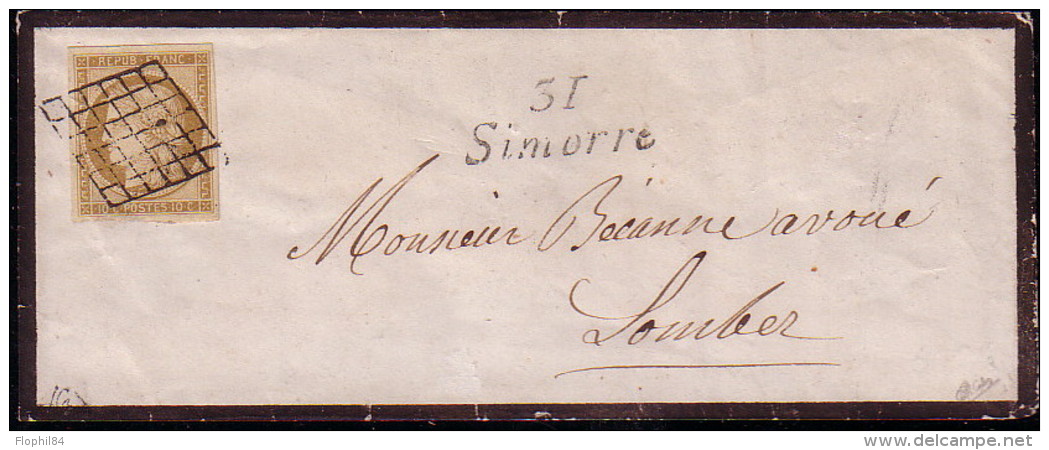 REPUB. FRANC.
10 C. POSTES 10 C.
31
Simorre
Monsieur Bécanne avoué
Lombez
Flophil84
delcampe.net